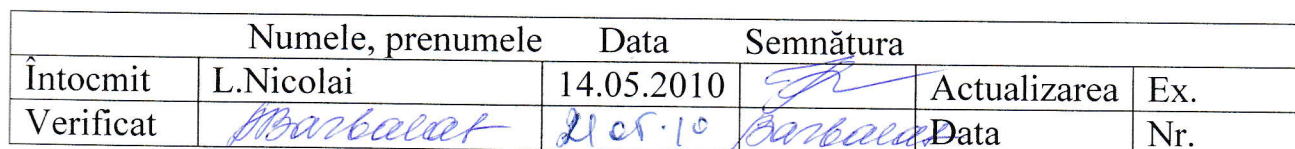 Numele, prenumele Data Semnătura
Întocmit L.Nicolai 14.05.2010 Actualizarea Ex.
Verificat Barbalat 21 05.10 Barbalat Data Nr.